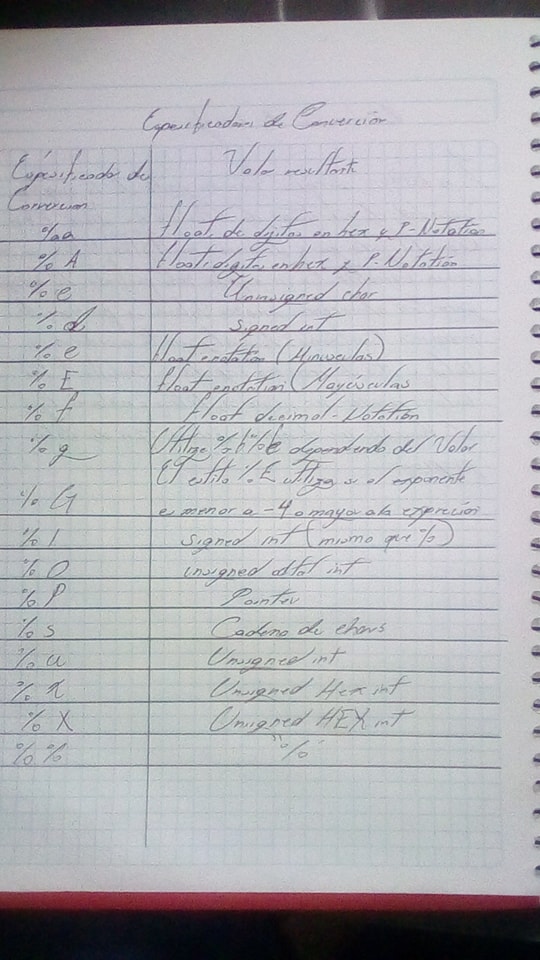 Especificadores de Conversión
Especificador de Conversion Valor resultante
%a float, de digitos en hex y P-Notation
%A float, digitos en hex y P-Notation
%e Unnsigned char
%d signed int
%e float enotation (Minusculas)
%E float enotation (Mayúsculas
%f float decimal-Notation
%g Utilize %f %e dependendo del Valor
El estilo %E utiliza si el exponente
%G es menor a -4 o mayor a la expreción
%I signed int (mismo que %)
%O unsigned octal int
%P Pointer
%s Cadena de chars
%u Unsigned int
%x Unsigned Hex int
%X Unsigned HEX int
%% "%"